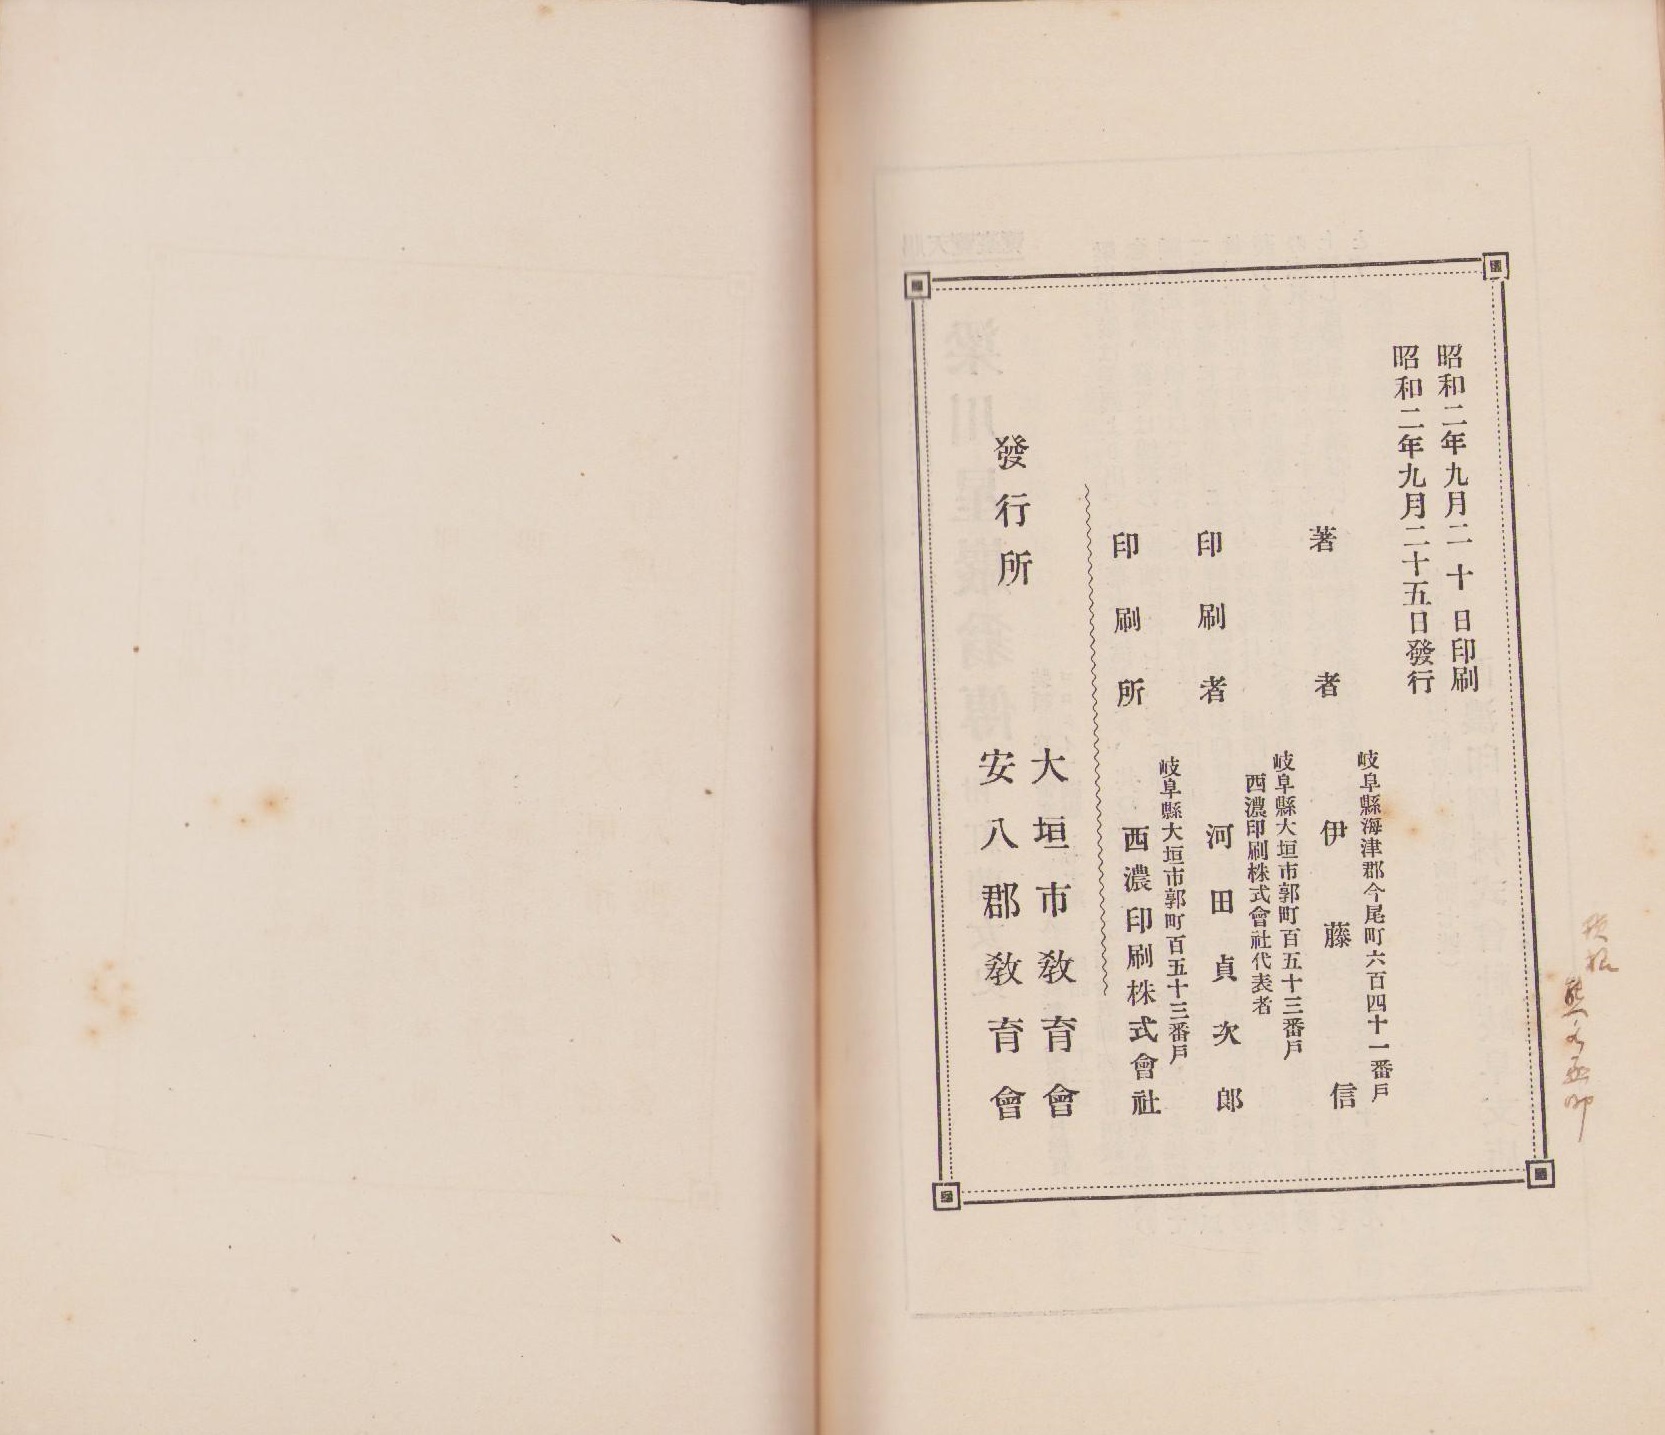 昭和二年九月二十日印刷
昭和二年九月二十五日發行
岐阜縣海津郡今尾町六百四十一番戶
著者 伊藤信
岐阜縣大垣市郭町百五十三番戶
西濃印刷株式會社代表者
印刷者 河田貞次郎
岐阜縣大垣市郭町百五十三番戶
印刷所 西濃印刷株式會社
發行所 大垣市敎育會
安八郡敎育會